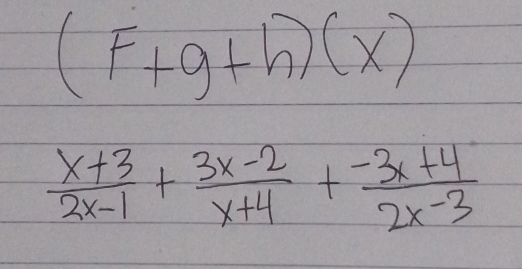 (F+g+h)(x)
x+3/2x-1 + 3x-2/x+4 + -3x+4/2x-3